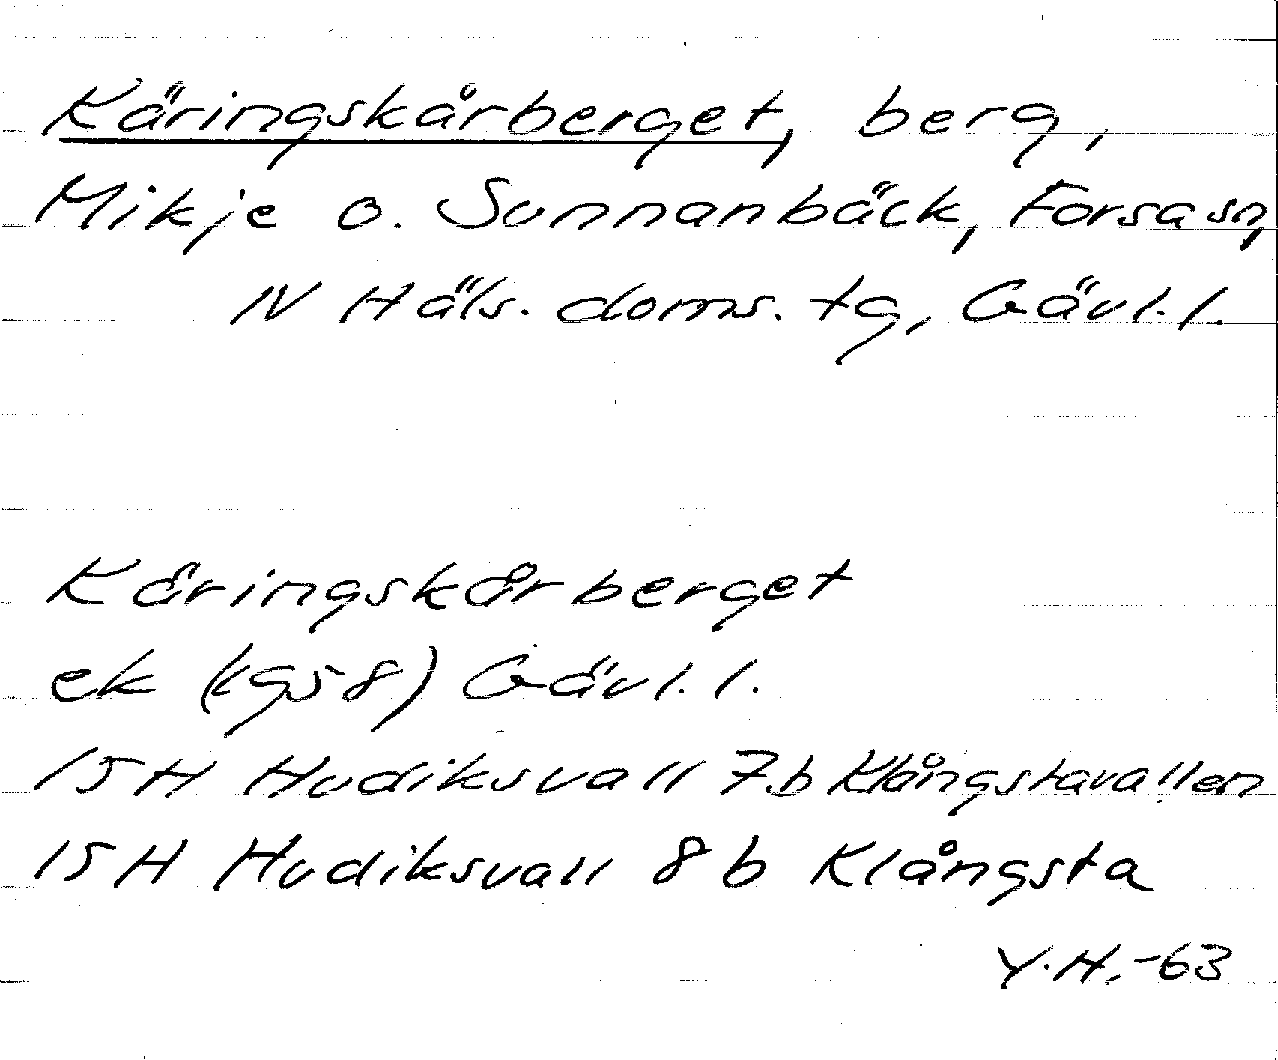 Käringskårberget, berg,
Mikje o. Sunnanbäck, Forsa sn,
N Häls. doms. tg, Gävl. l.
Käringskårberget
ek (1958) Gävl. l.
15H Hudiksvall 7b Klångstavallen
15H Hudiksvall 8b Klångsta
Y.H.-63